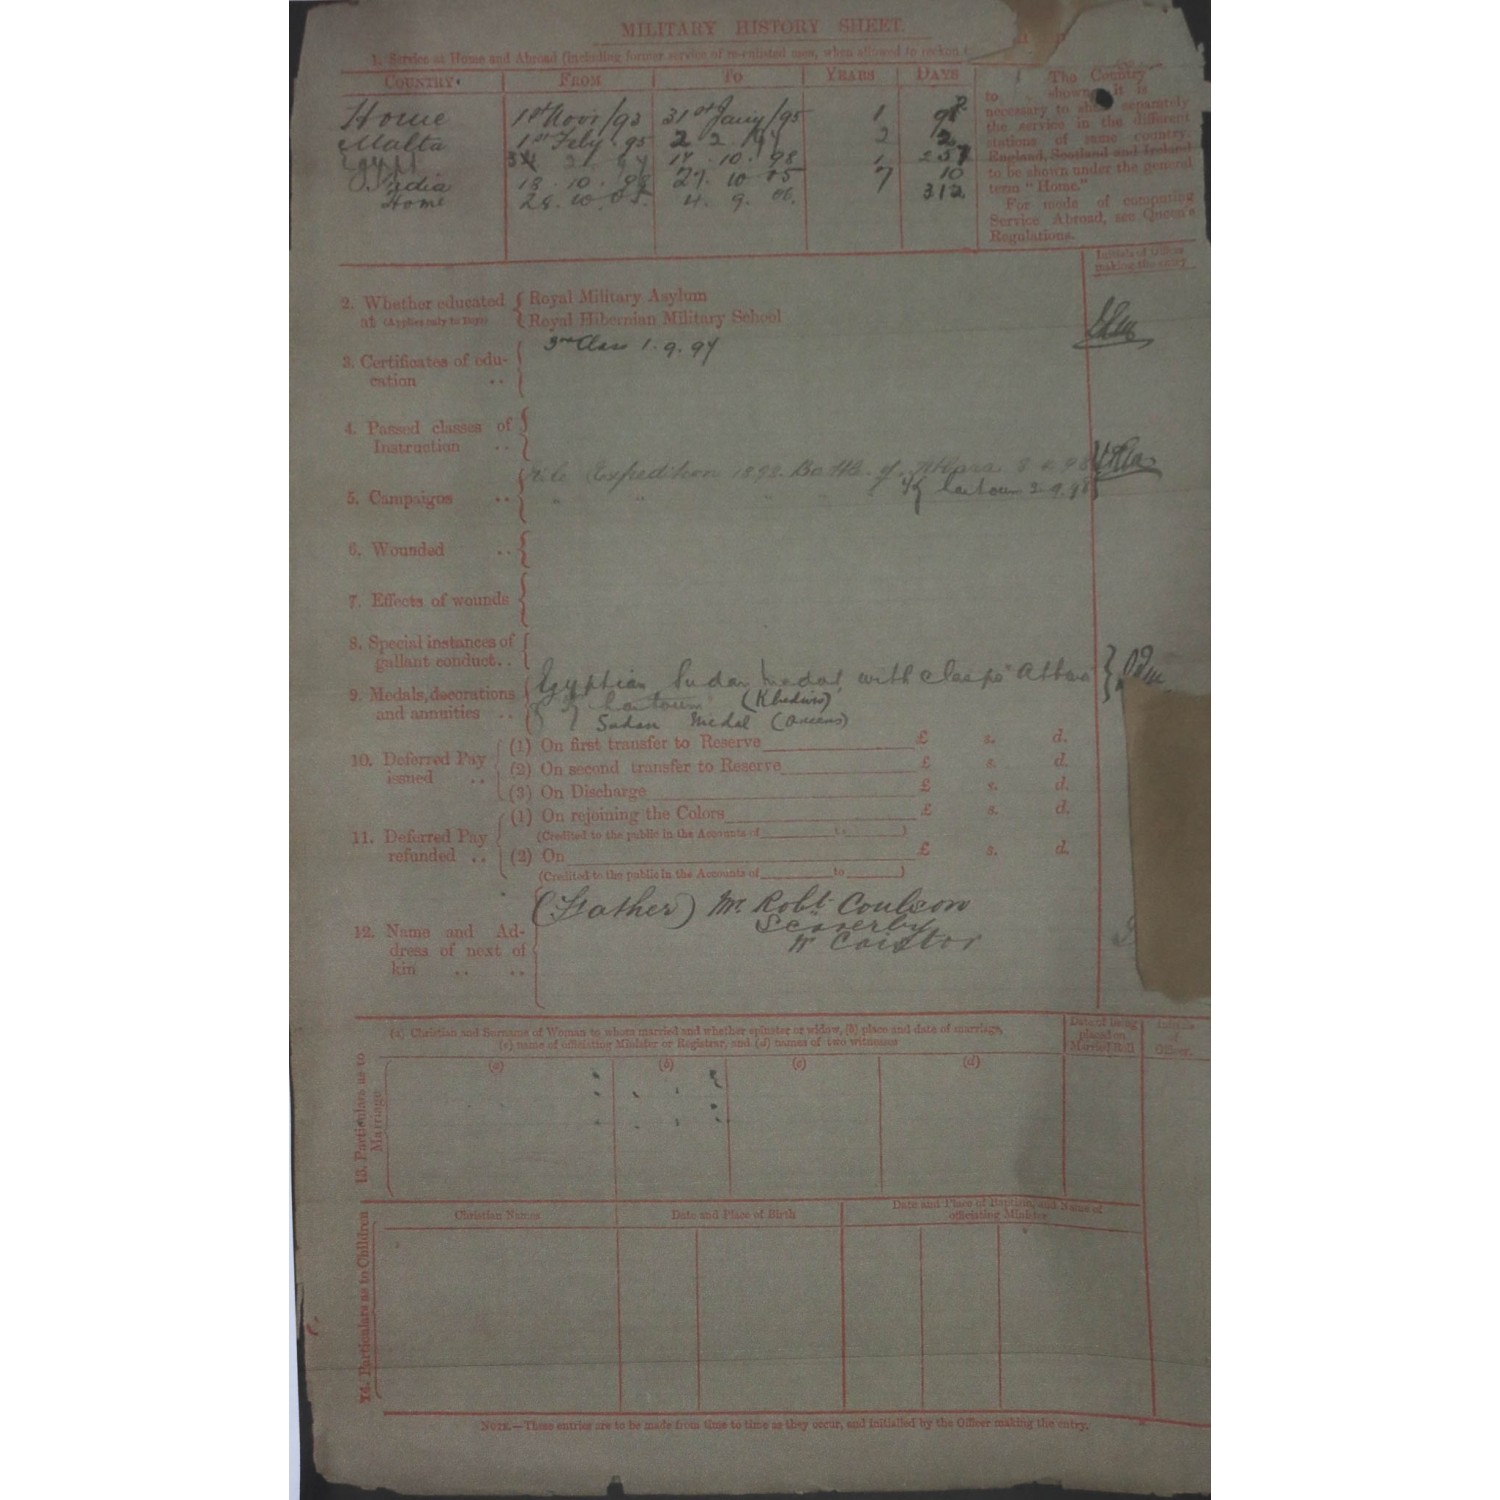 MILITARY HISTORY SHEET.
1. Service at Home and Abroad (including former service of re-enlisted men, when allowed to reckon
COUNTRY. FROM TO YEARS DAYS
Home 1st Novr/93 31st Jany/95 1
Malta 1st Feby .95 2 2 97 2 2
Egypt 2 97 17 . 10 . 98 1 257
India 18 . 10 . 98 27. 10 05 7 10
Home 28. 10. 05. 4. 9. 06. 312
The Country
to shown, it is
necessary to show separately
the service in the different
stations of same country.
England, Scotland and Ireland
to be shown under the general
term "Home."
For mode of computing
Service Abroad, see Queen's
Regulations.
Initials of Officer
making the entry
2. Whether educated at (Applies only to Boys) { Royal Military Asylum
Royal Hibernian Military School
3. Certificates of education .. 3rd Class 1.9.97
4. Passed classes of Instruction ..
5. Campaigns .. Nile Expedition 1898. Battle of Atbara 8.4.98
" " " " of Khartoum 2.9.98
6. Wounded ..
7. Effects of wounds
8. Special instances of gallant conduct..
9. Medals, decorations and annuities .. Egyptian Sudan medal with clasps Atbara
Khartoum (Khedives)
Sudan Medal (Queens)
10. Deferred Pay issued .. (1) On first transfer to Reserve £ s. d.
(2) On second transfer to Reserve £ s. d.
(3) On Discharge £ s. d.
11. Deferred Pay refunded .. (1) On rejoining the Colors £ s. d.
(Credited to the public in the Accounts of to )
(2) On £ s. d.
(Credited to the public in the Accounts of to )
12. Name and Address of next of kin .. .. (Father) Mr. Robt. Coulson
Nr Caistor
13. Particulars as to Marriage
(a) Christian and Surname of Woman to whom married and whether spinster or widow, (b) place and date of marriage,
(c) name of officiating Minister or Registrar, and (d) names of two witnesses
Date of being placed on Married Roll
Initials of Officer.
(a) (b) (c) (d)
14. Particulars as to Children
Christian Names Date and Place of Birth Date and Place of Baptism, and Name of officiating Minister
NOTE.—These entries are to be made from time to time as they occur, and initialled by the Officer making the entry.